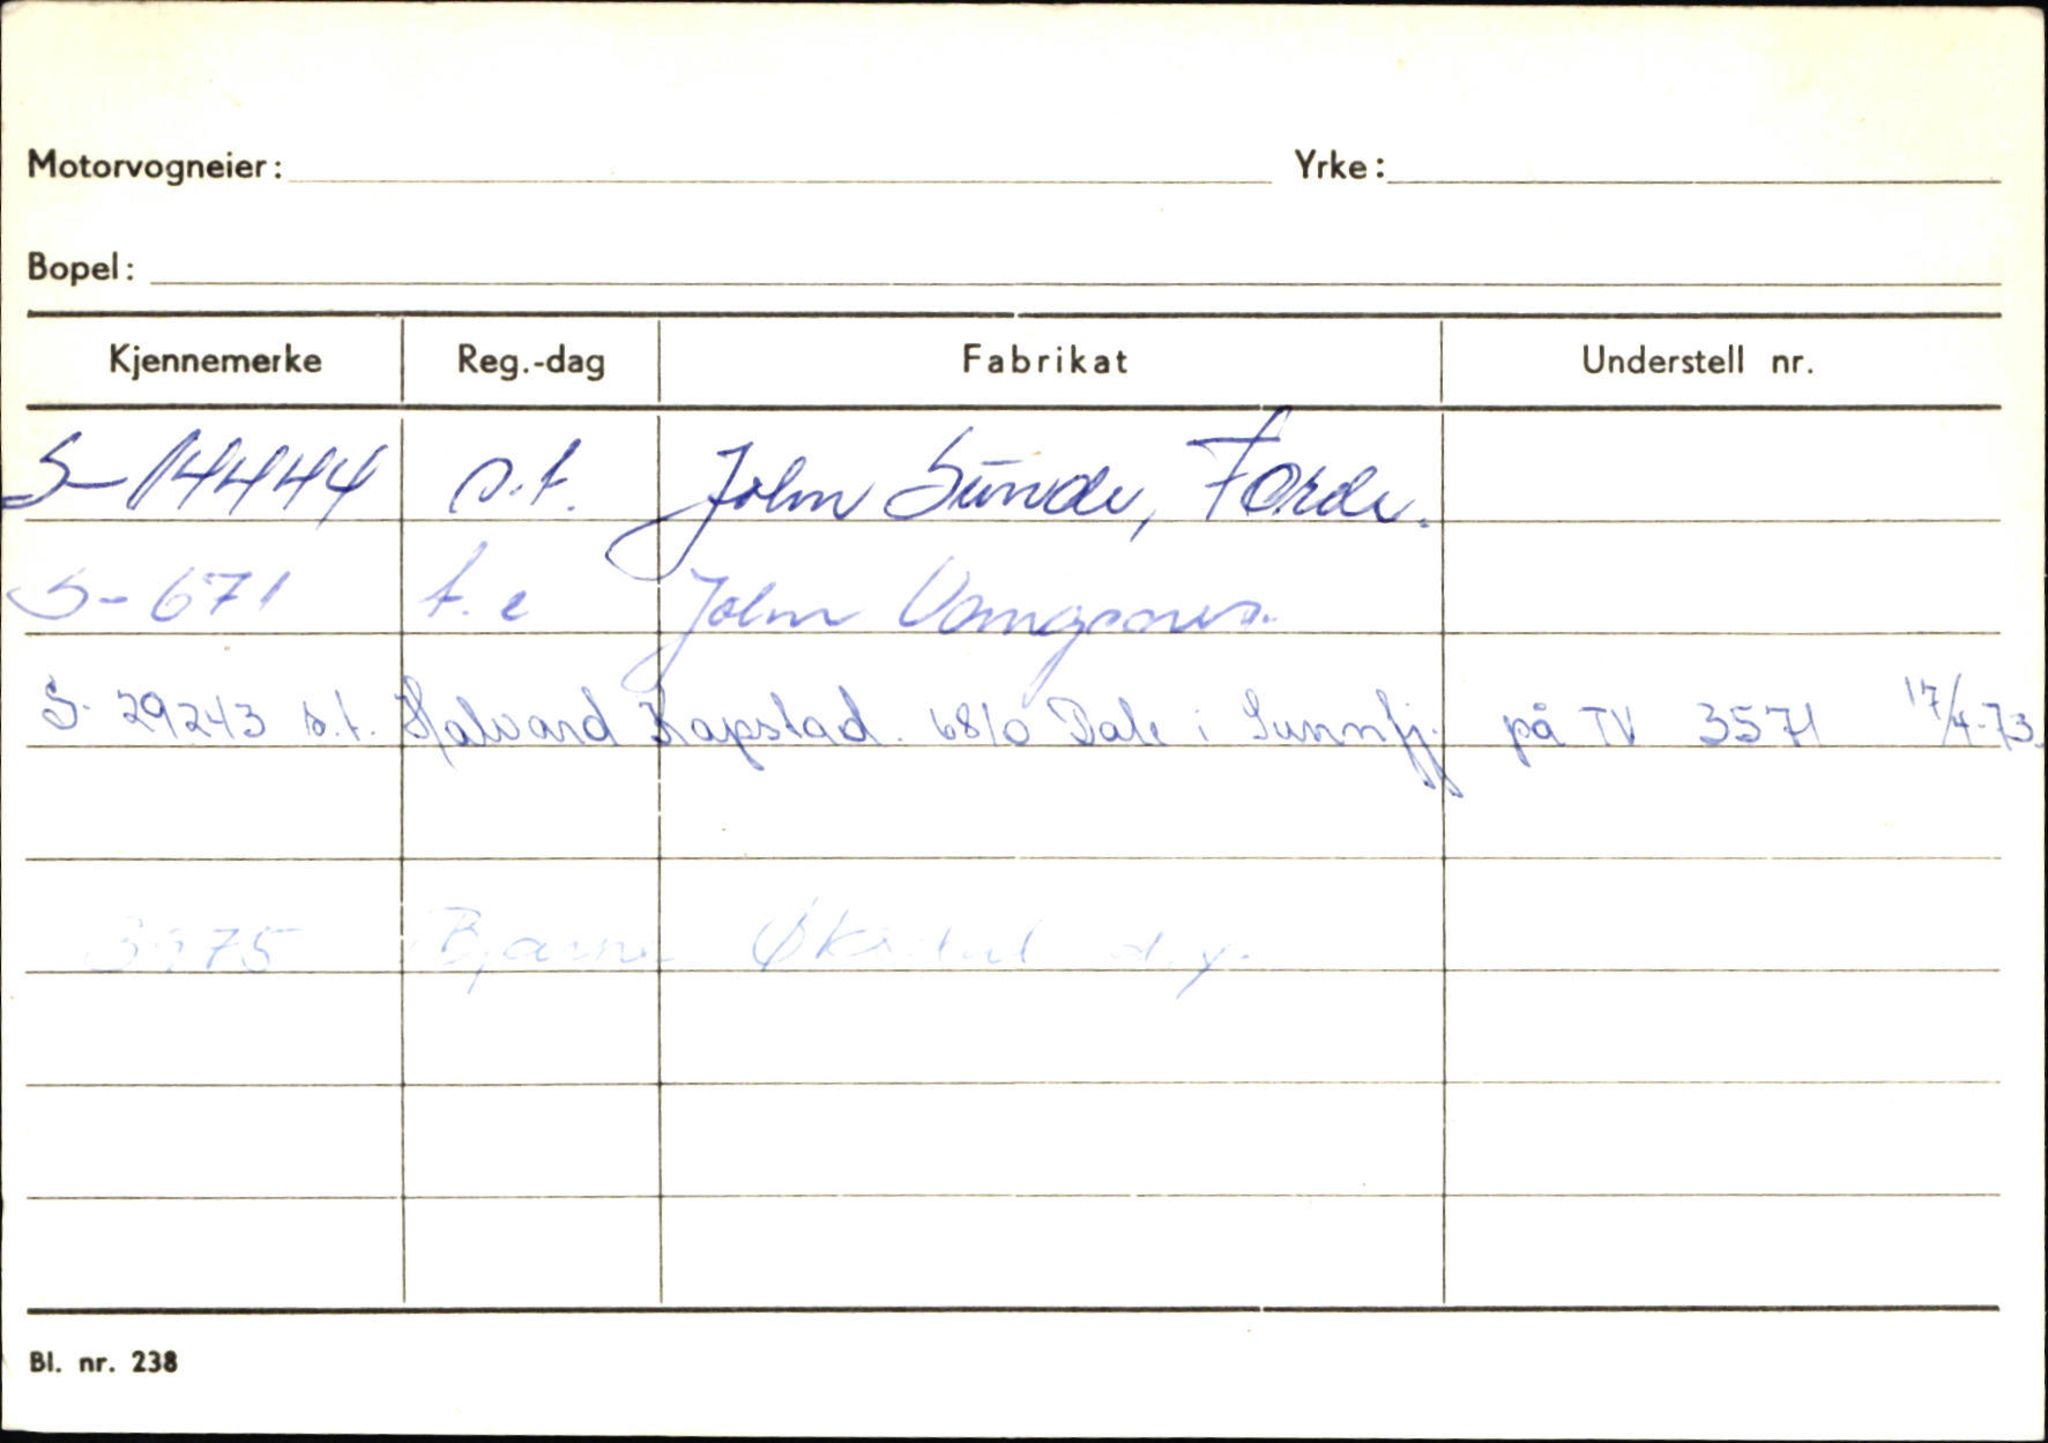 Motorvogneier: Yrke:
Bopel:
Kjennemerke Reg.-dag Fabrikat Understell nr.
S-14444 s.t. John Sunde, Førde.
S-671 t.e John
S-29243 s.t. Halvard Kapstad. 6810 Dale i Sunnfj. på TV 3571 17/4-73.
Bjarne d.y.
Bl. nr. 238